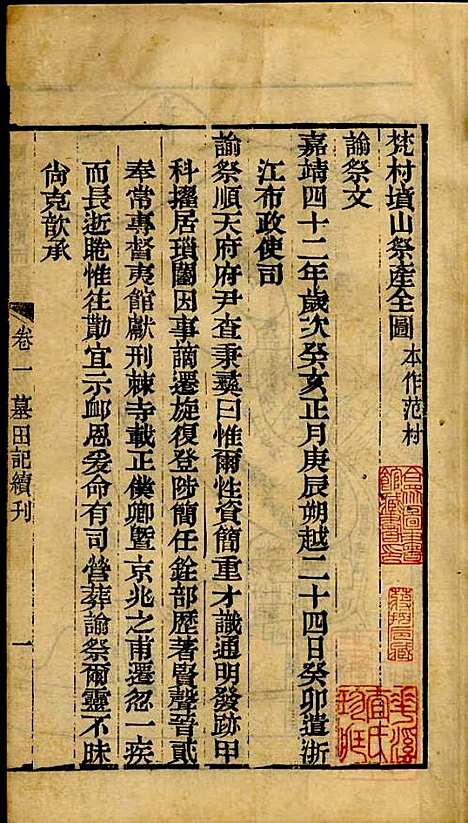 梵村墳山祭產全圖 本作范村
諭祭文
嘉靖四十二年歲次癸亥正月庚辰朔越二十四日癸卯遣浙
江布政使司
諭祭順天府府尹查秉彝曰惟爾性資簡重才識通明發跡甲
科擢居瑣闥因事謫遷旋復登陟簡任銓部歷著賢聲晉貳
奉常專督夷館獻刑棘寺載正僕卿曁京兆之甫遷忽一疾
而長逝眷惟往勚宜示卹恩爰命有司營葬諭祭爾靈不昧
尙克歆承
卷一 墓田記續刊 一